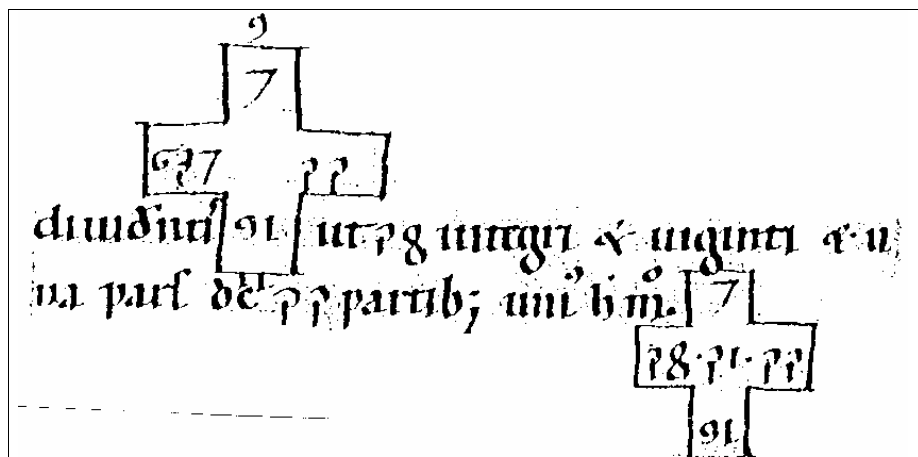 9
7
637 22
diuidentis 91 ut 28 integri & uiginti & u
na pars de 22 partib; uni' h m°.
7
28·21·22
91